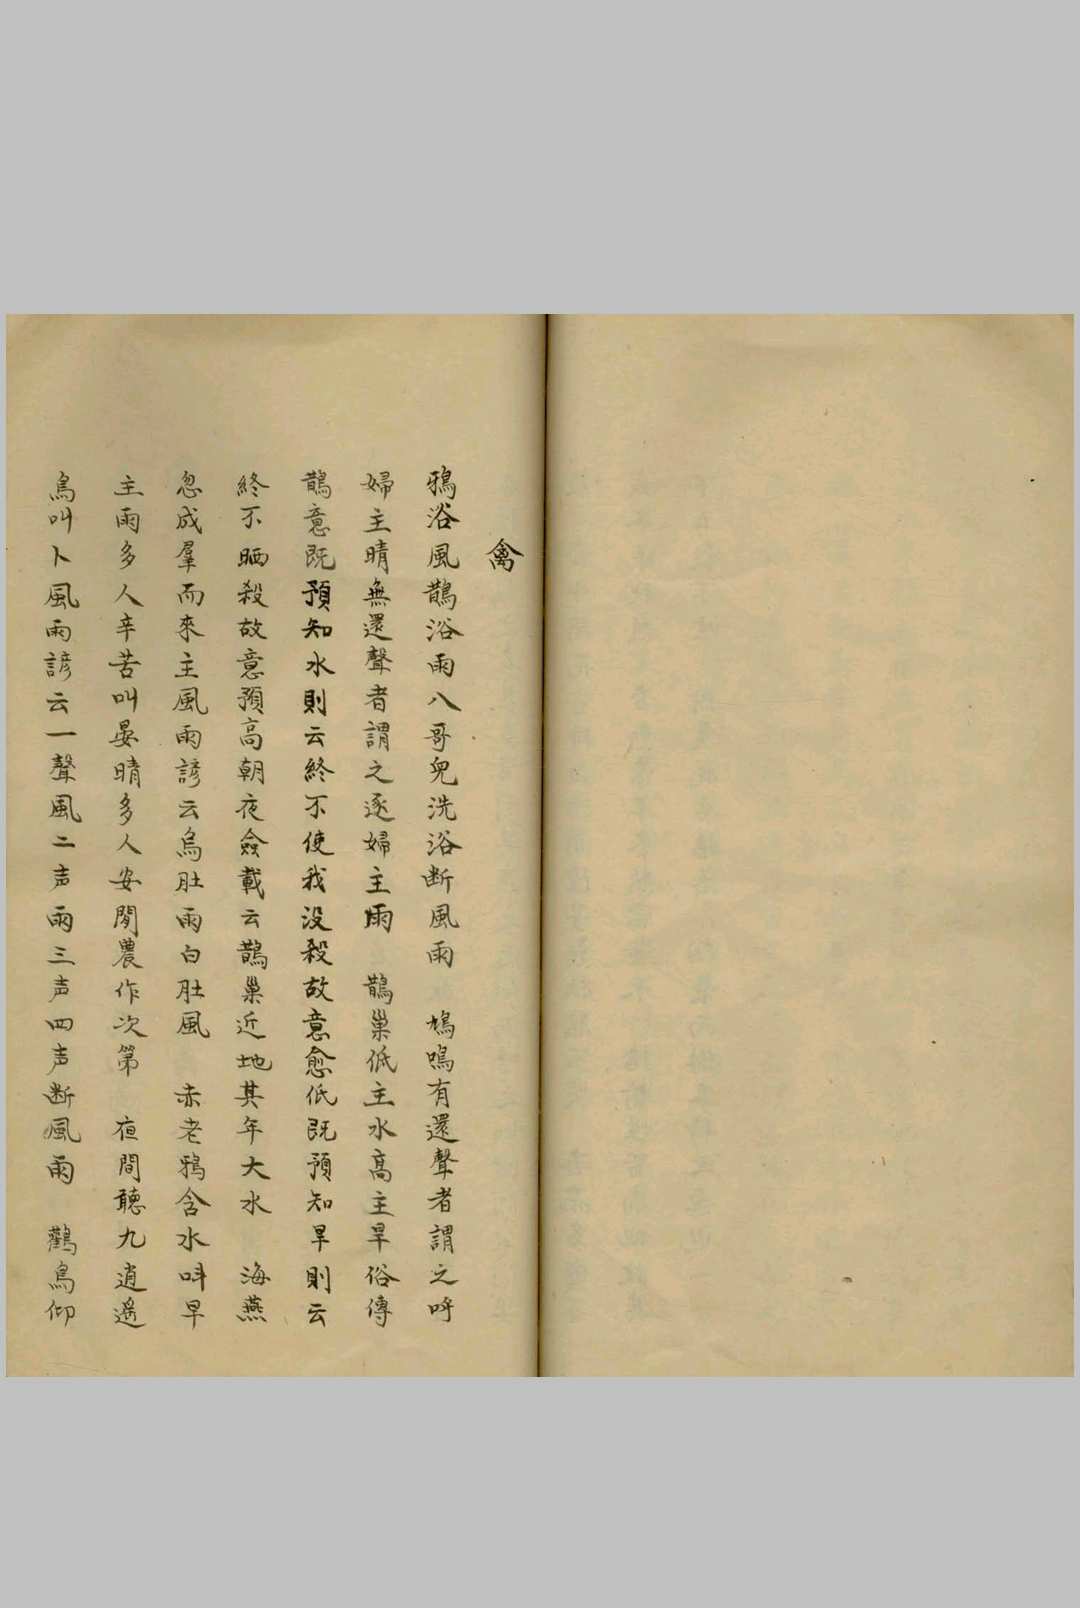 禽
鴉浴風鵲浴雨八哥兒洗浴断風雨　鳩鳴有還聲者謂之呼
婦主晴無還聲者謂之逐婦主雨　鵲巢低主水高主旱俗傳
鵲意既預知水則云終不使我没殺故意愈低既預知旱則云
終不晒殺故意預高朝夜僉載云鵲巢近地其年大水　海燕
忽成羣而來主風雨諺云烏肚雨白肚風　赤老鴉含水叫早
主雨多人辛苦叫晏晴多人安閒農作次第　夜間聽九逍遥
鳥叫卜風雨諺云一聲風二声雨三声四声断風雨　鸛鳥仰